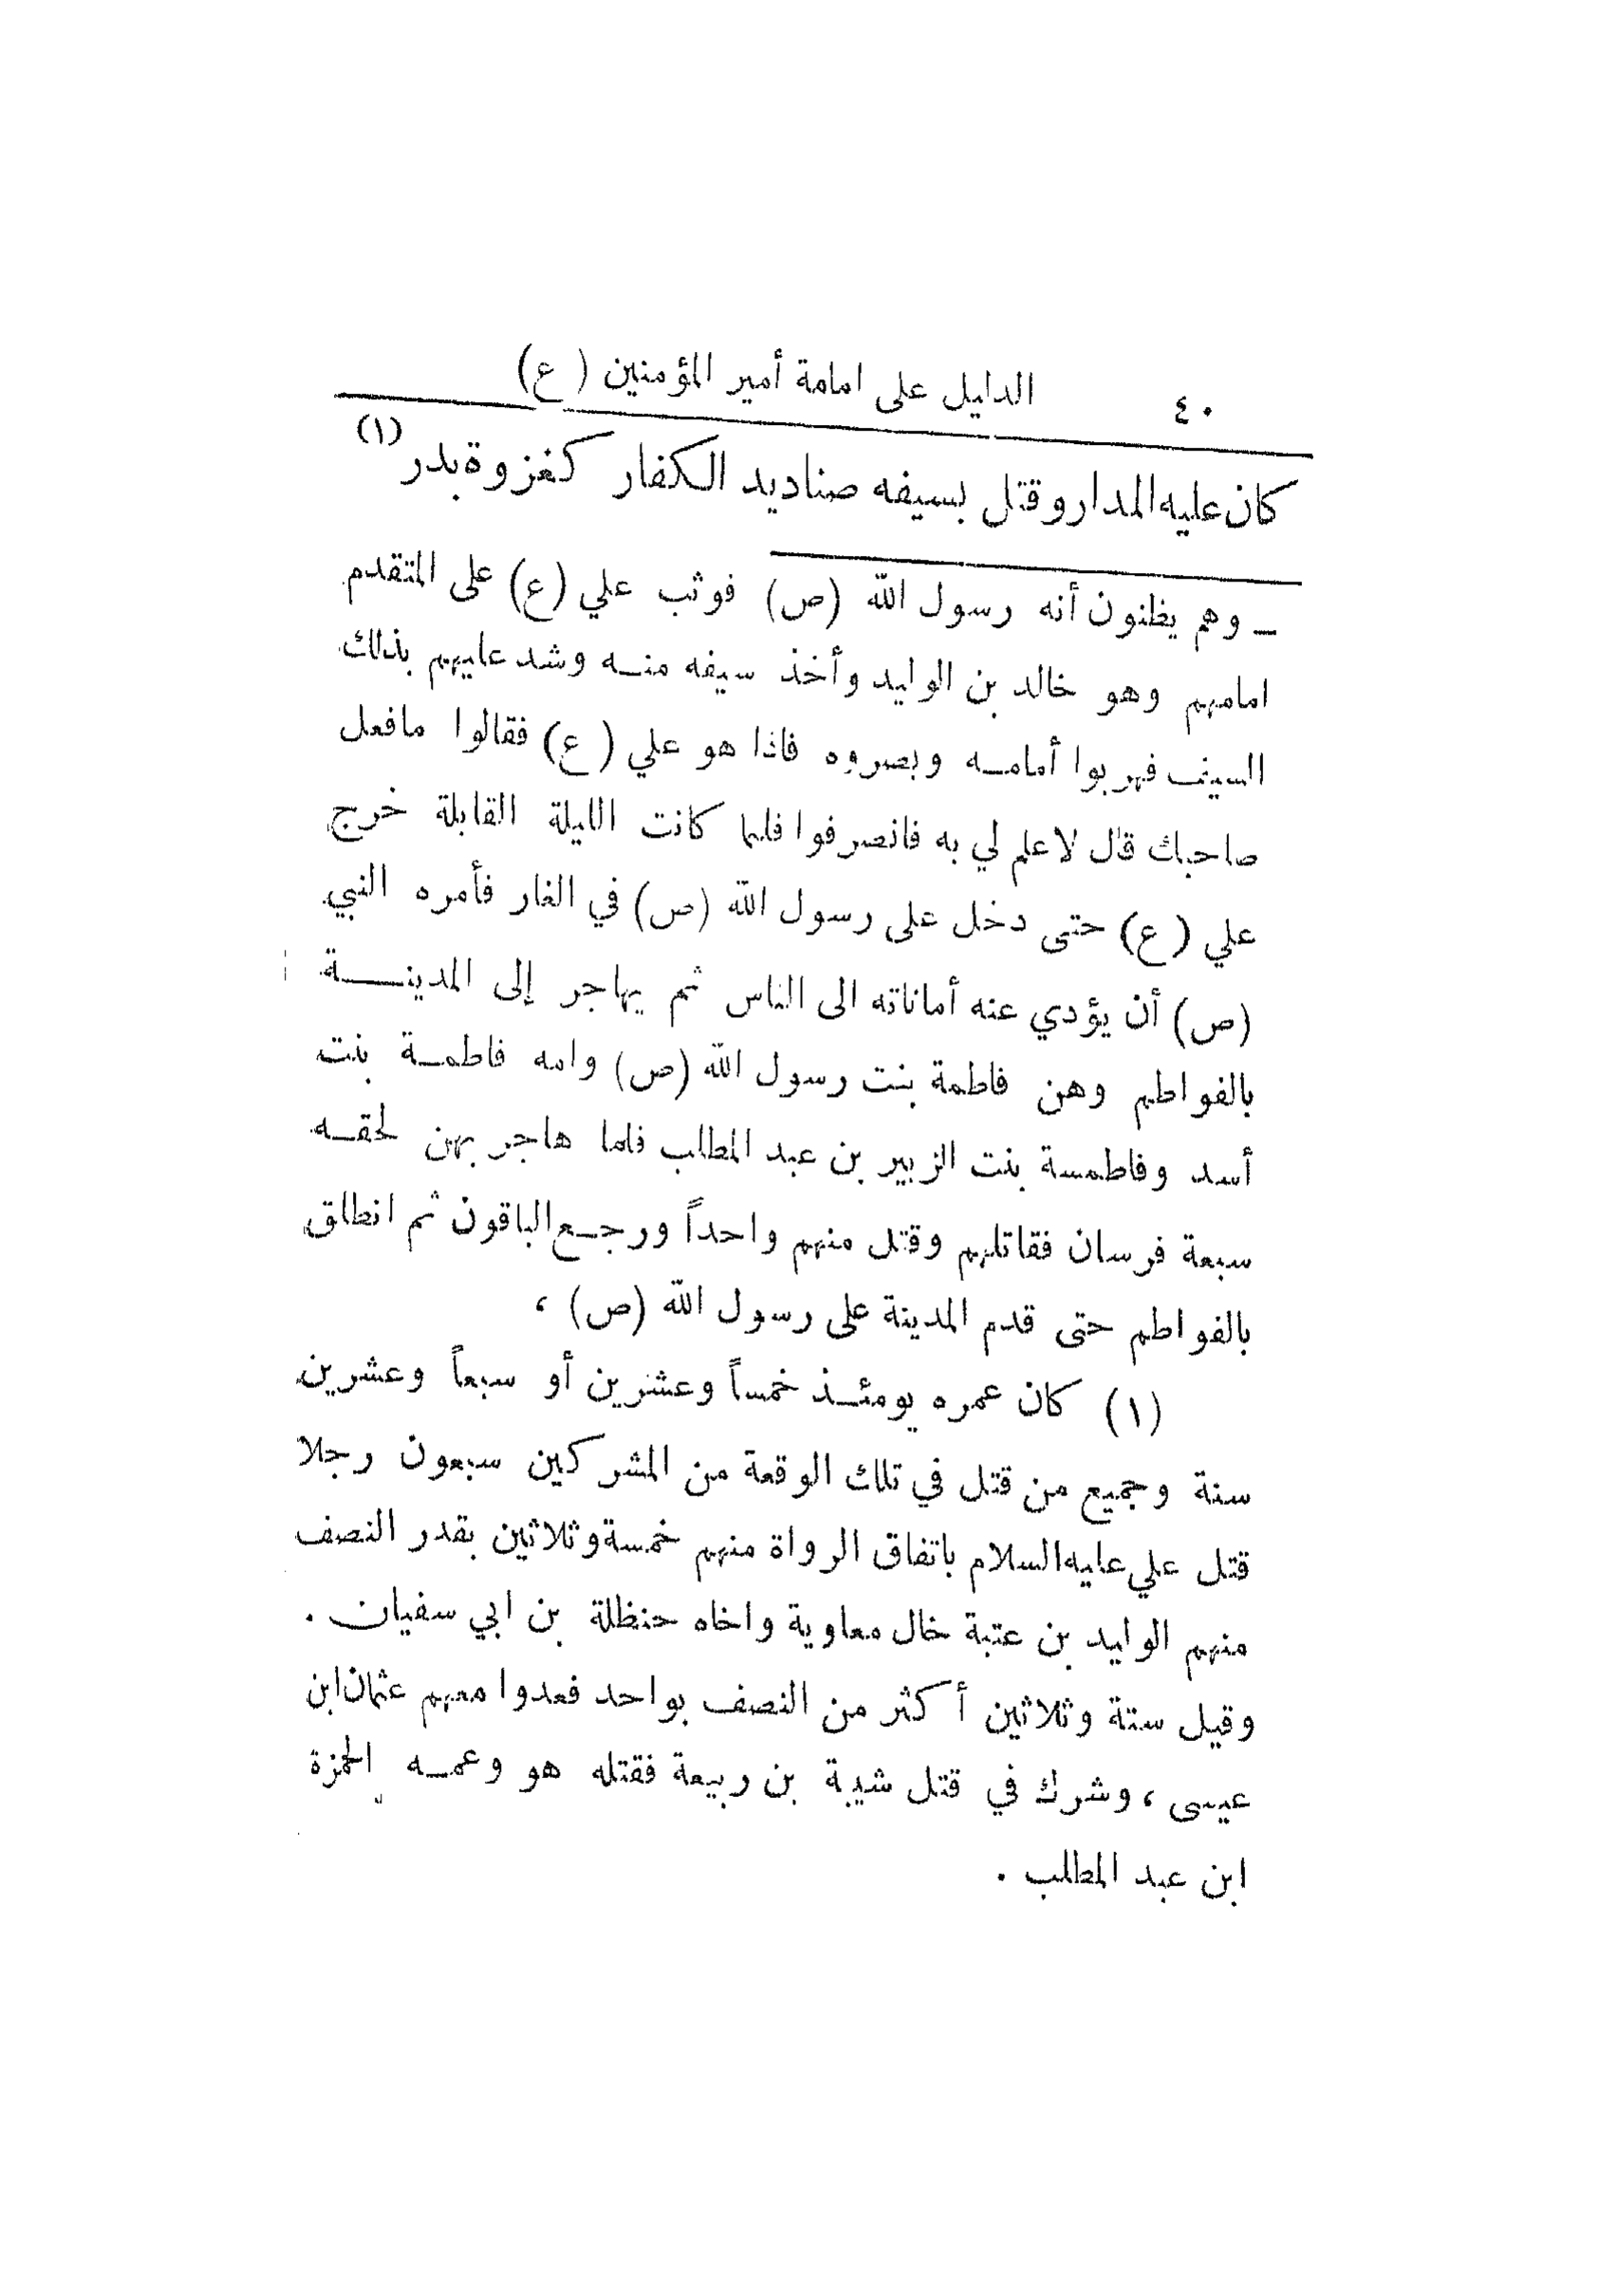 ٤٠ الدليل على امامة أمير المؤمنين (ع)
كان عليه المدار وقتل بسيفه صناديد الكفار كغزوة بدر (١)
ـ وهم يظنون أنه رسول الله (ص) فوثب علي (ع) على المتقدم
امامهم وهو خالد بن الوليد وأخذ سيفه منه وشد عليهم بذلك
السيف فهربوا أمامه وبصروه فاذا هو علي (ع) فقالوا مافعل
صاحبك قال لاعلم لي به فانصرفوا فلما كانت الليلة القابلة خرج
علي (ع) حتى دخل على رسول الله (ص) في الغار فأمره النبي
(ص) أن يؤدي عنه أماناته الى الناس ثم يهاجر إلى المدينة
بالفواطم وهن فاطمة بنت رسول الله (ص) وامه فاطمة بنت
أسد وفاطمسة بنت الزبير بن عبد المطلب فلما هاجر بهن لحقه
سبعة فرسان فقاتلهم وقتل منهم واحداً ورجع الباقون ثم انطلق
بالفواطم حتى قدم المدينة على رسول الله (ص) ،
(١) كان عمره يومئذ خمساً وعشرين أو سبعاً وعشرين
سنة وجميع من قتل في تلك الوقعة من المشركين سبعون رجلا
قتل علي عليه السلام باتفاق الرواة منهم خمسة وثلاثين بقدر النصف
منهم الوليد بن عتبة خال معاوية واخاه حنظلة بن ابي سفيان .
وقيل ستة وثلاثين أكثر من النصف بواحد فعدوا معهم عثمان ابن
عيسى ، وشرك في قتل شيبة بن ربيعة فقتله هو وعمه الحمزة
ابن عبد المطلب .